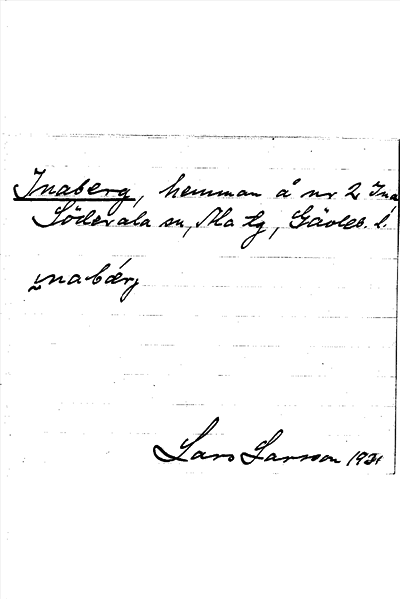 Inaberg, hemman å nr 2 Ina
Söderala sn, Ala tg, Gävleb. l.
ɪnabærj
Lars Larsson 192